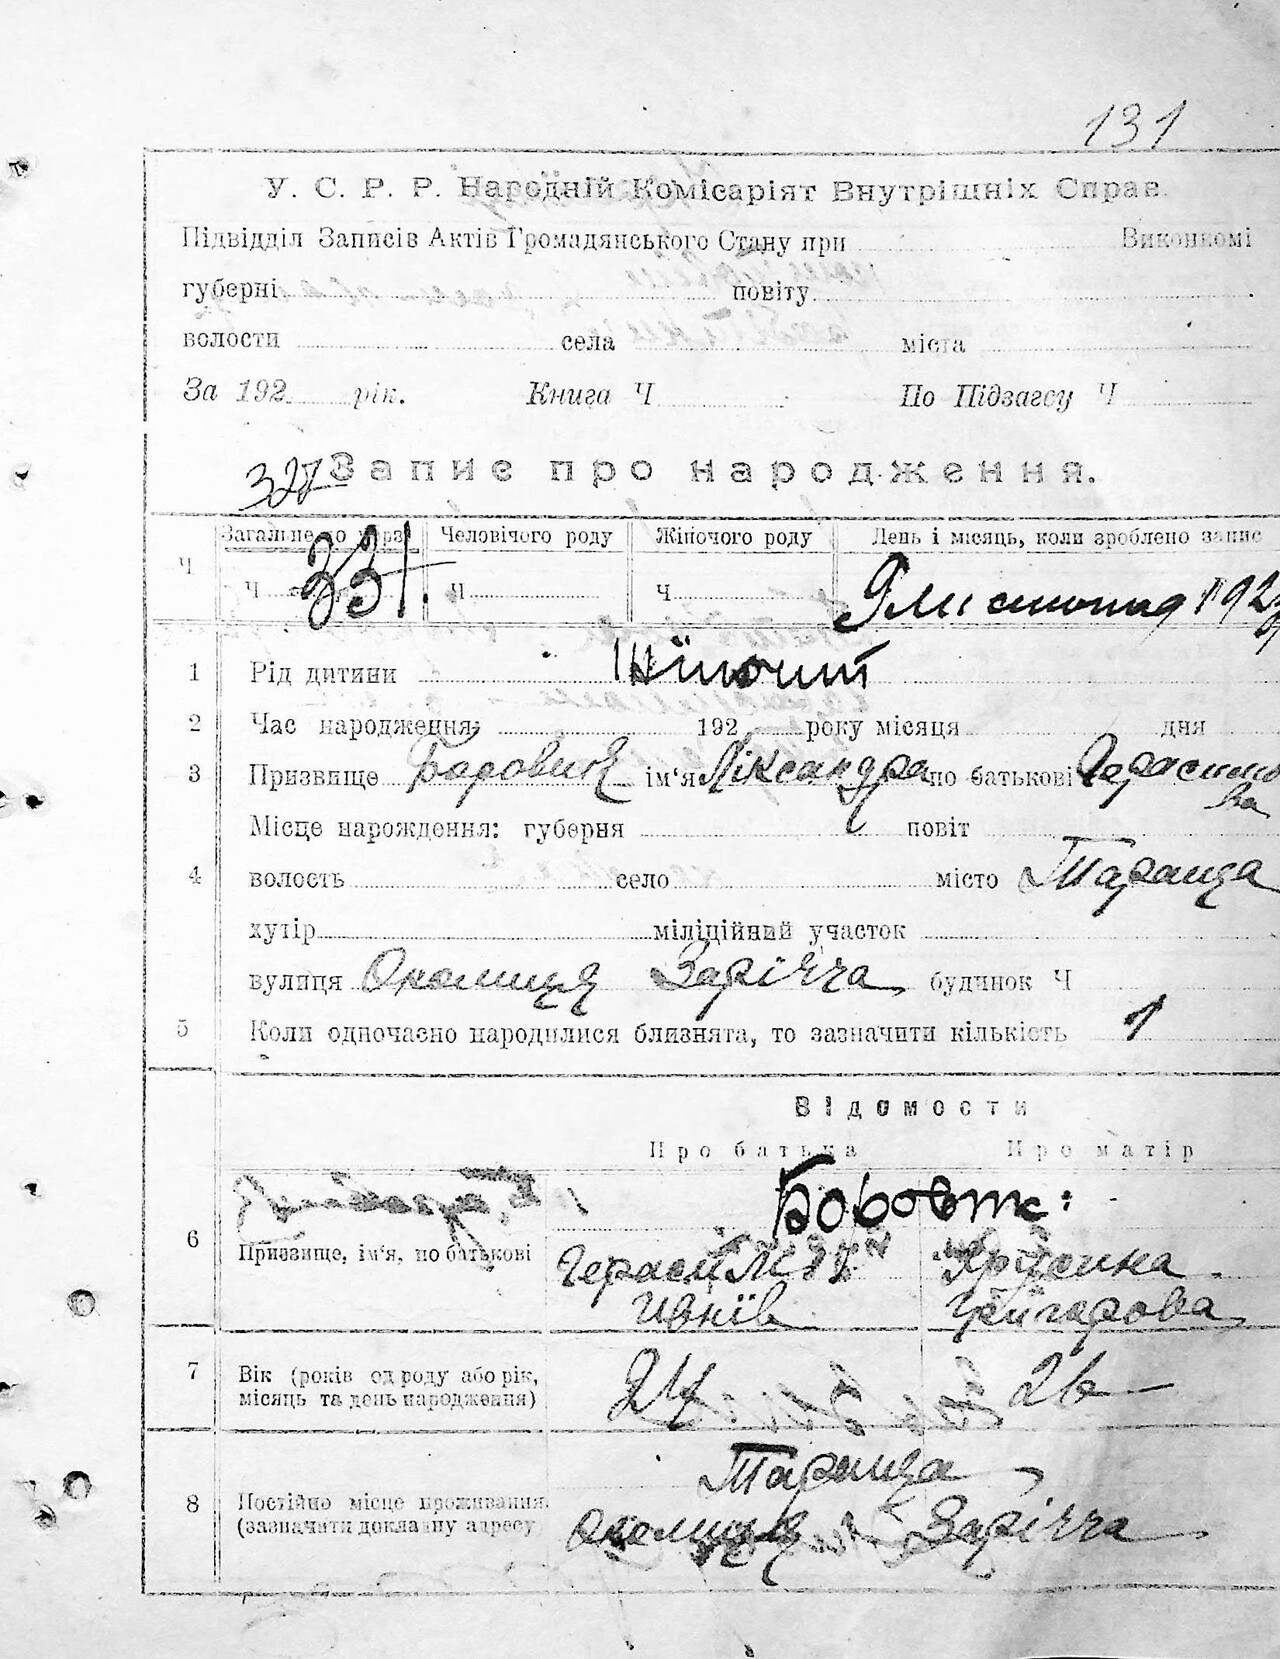 131
У. С. Р. Р. Народній Комісаріят Внутрішніх Справ.
Підвідділ Записів Актів Громадянського Стану при Виконкомі
губерні повіту
волости села міста
За 192 рік. Книга Ч По Підзагсу Ч
327 Запис про народження.
Ч Загальне до Челові́чого роду Жіночого роду День і місяць, коли зроблено запис
Ч 331. Ч Ч 9 листопад 192
1 Рід дитини Жіночий
2 Час народження: 192 року місяця дня
3 Призвище Боровик ім'я Ліксандра по батькові Герасимо
ва
Місце нарождення: губерня повіт
4 волость село місто Тараща
хутір міліційний участок
вулиця Околиця Зарічча будинок Ч
5 Коли одночасно народилися близнята, то зазначити кількість 1
Відомости
Про батька Про матір
Боровик:
6 Призвище, ім'я, по батькові Герасим Ярисина
Ивнів Григорова
7 Вік (років од роду або рік, 24 26
місяць та день народження)
Тараща
8 Постійно місце проживання
(зазначити докладну адресу Околиця Зарічча